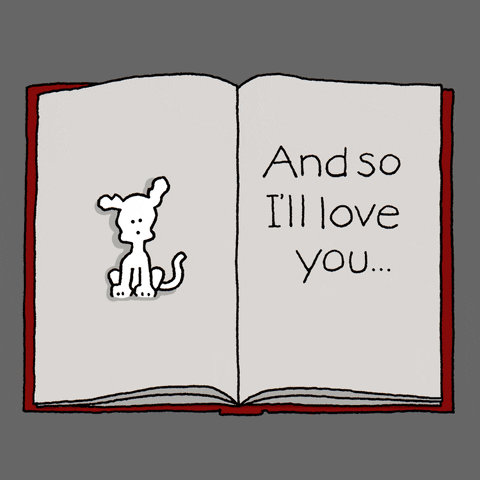 And so
I'll love
you...